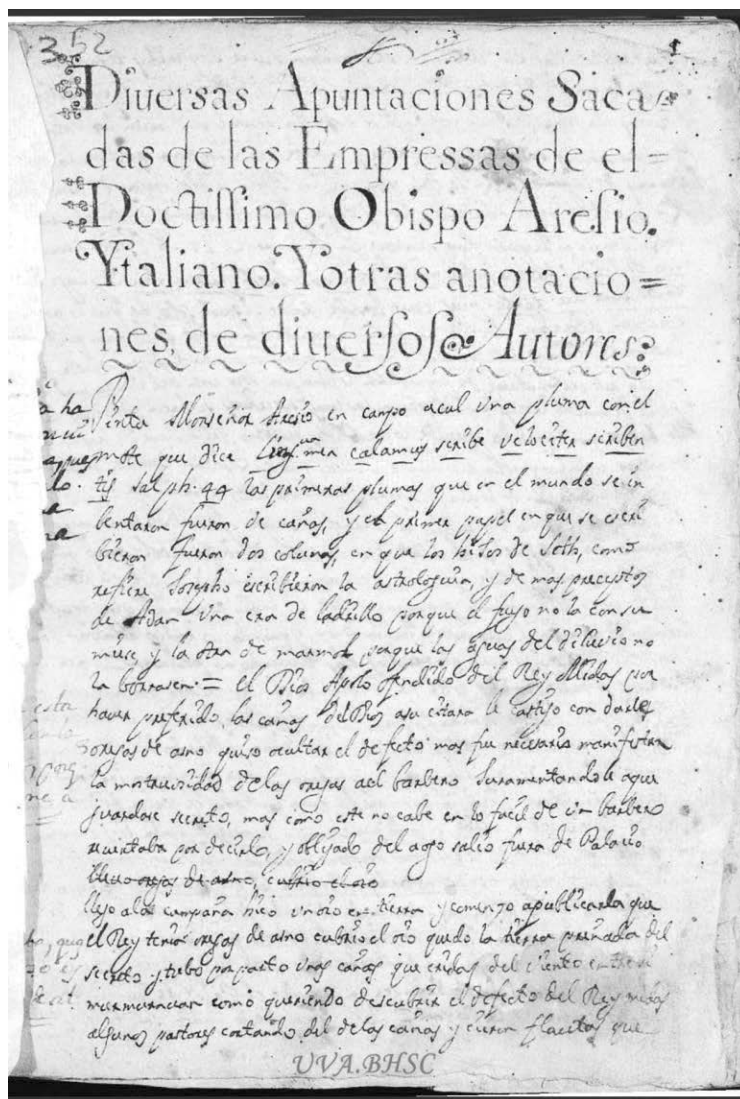 352
1
Diuersas Apuntaciones Saca-
das de las Empressas de el=
Doctissimo Obispo Aresio.
Ytaliano. Y otras anotacio=
nes, de diuersos Autores.
Pinta Monseñor Aresio en campo açul vna pluma con el
mote que dice Ling.ua mea calamus scribe velociter scriben
tis Salph. 44 las primeras plumas que en el mundo se in
bentaron fueron de cañas, y el primer papel en que se escri
bieron fueron dos colunas, en que los hijos de Seth, como
refiere Josepho escribieron la astrologuia, y demas preceptos
de Adan vna era de ladrillo porque el fuego no la consu
miese, y la otra de marmol porque las aguas del diluuio no
la borrasen = el Dios Apolo ofendido del Rey Midas por
hauer preferido las cañas del Dios a su citara le castigo con darle
orejas de asno quiso ocultar el defecto mas fue necesario manifestar
la mostruosidad de las orejas al barbero Juramentandole a que
guardase secreto, mas como este no cabe en lo facil de vn barbero
reuentaba por decirlo, y obligado del salio fuera de Palacio
orejas de asno, cubrio el oio
llego a la campaña hiço vn oio en tierra y començo a publicarla que
el Rey tenia orejas de asno cubrio el oio quedo la tierra preñada del
secreto y tubo por parto vnas cañas que eridas del viento entre si
murmurauan como queriendo descubrir el defecto del Rey midas
algunos pastores cortando de las cañas y flautas que
UVA.BHSC